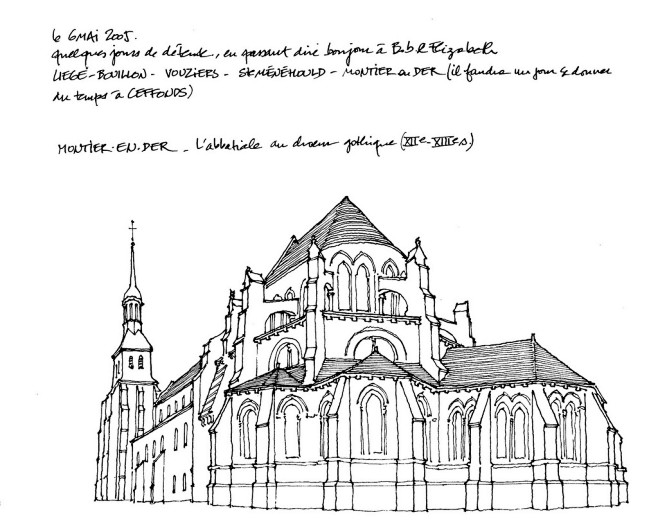 le 6 MAI 2005.
quelques jours de détente, en passant dire bonjour à Bob & Elizabeth
LIEGE - BOUILLON - VOUZIERS - Ste MÉNÉHOULD - MONTIER en DER (il faudra un jour se donner
du temps à CEFFONDS)
MONTIER-EN-DER - L'abbatiale au chœur gothique (XIIe-XIIIe s.)